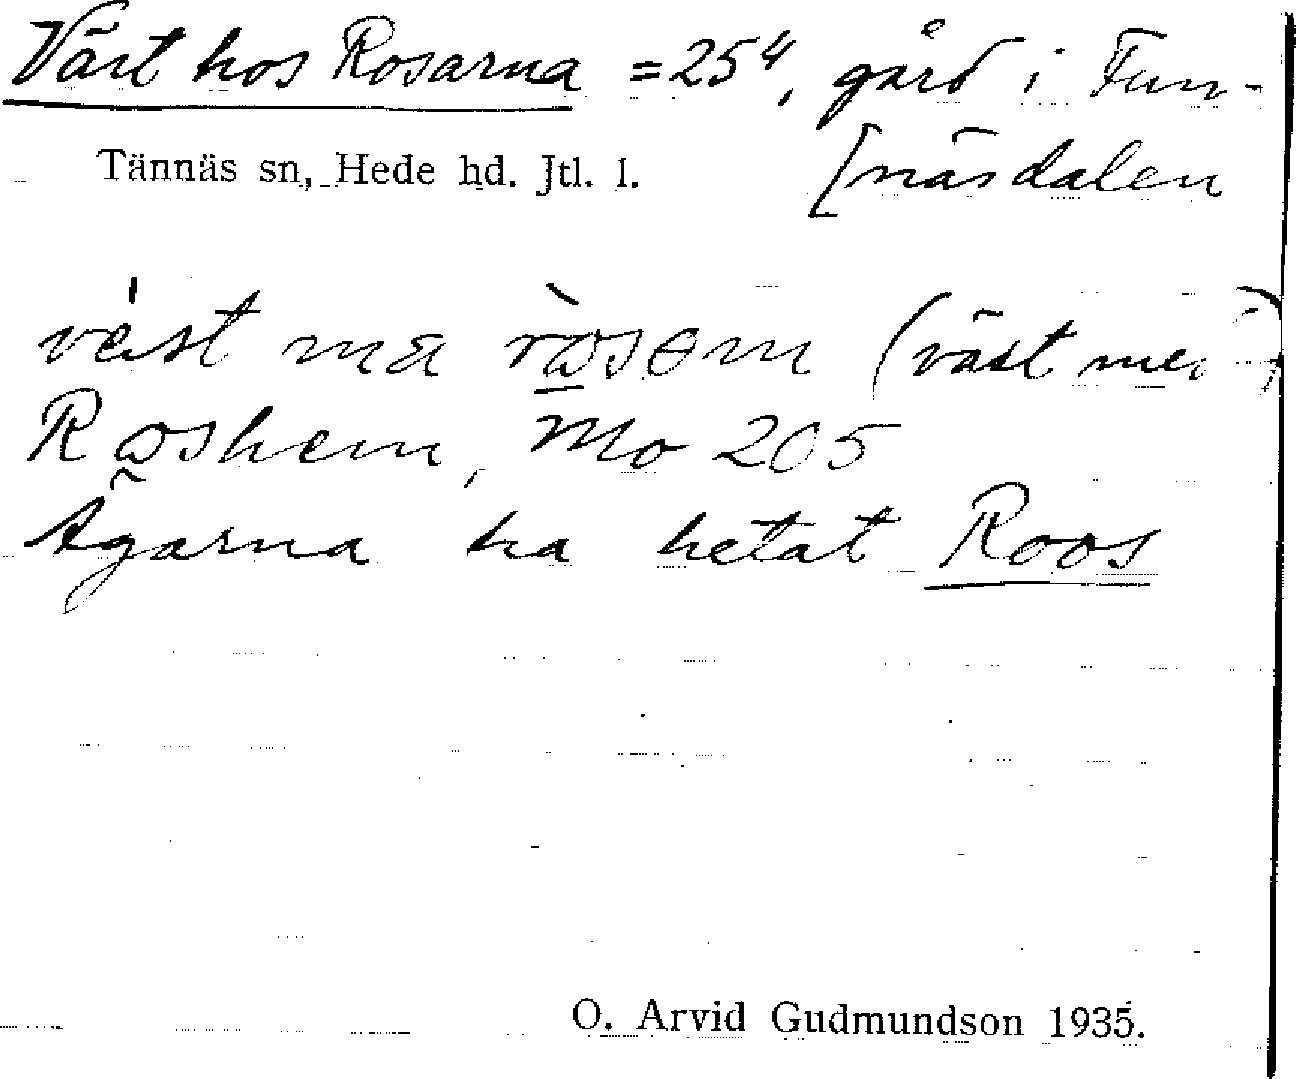 Väst hos Rosarna = 25⁴, gård i Fun-
[näsdalen
Tännäs sn, Hede hd. Jtl. l.
väst ma rosəm (väst me
Roshem, Mo 205
Ägarna ha hetat Roos
O. Arvid Gudmundson 1935.